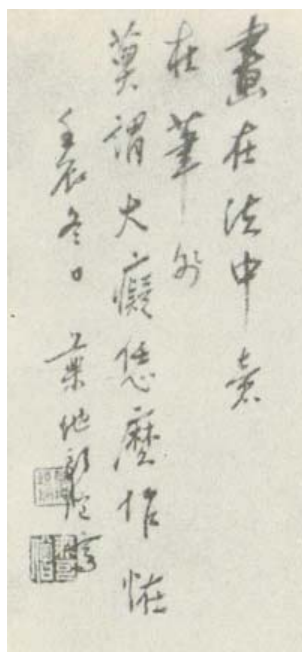 畫在法中意
在筆外
莫謂大癡恁麼作怪
壬辰冬日